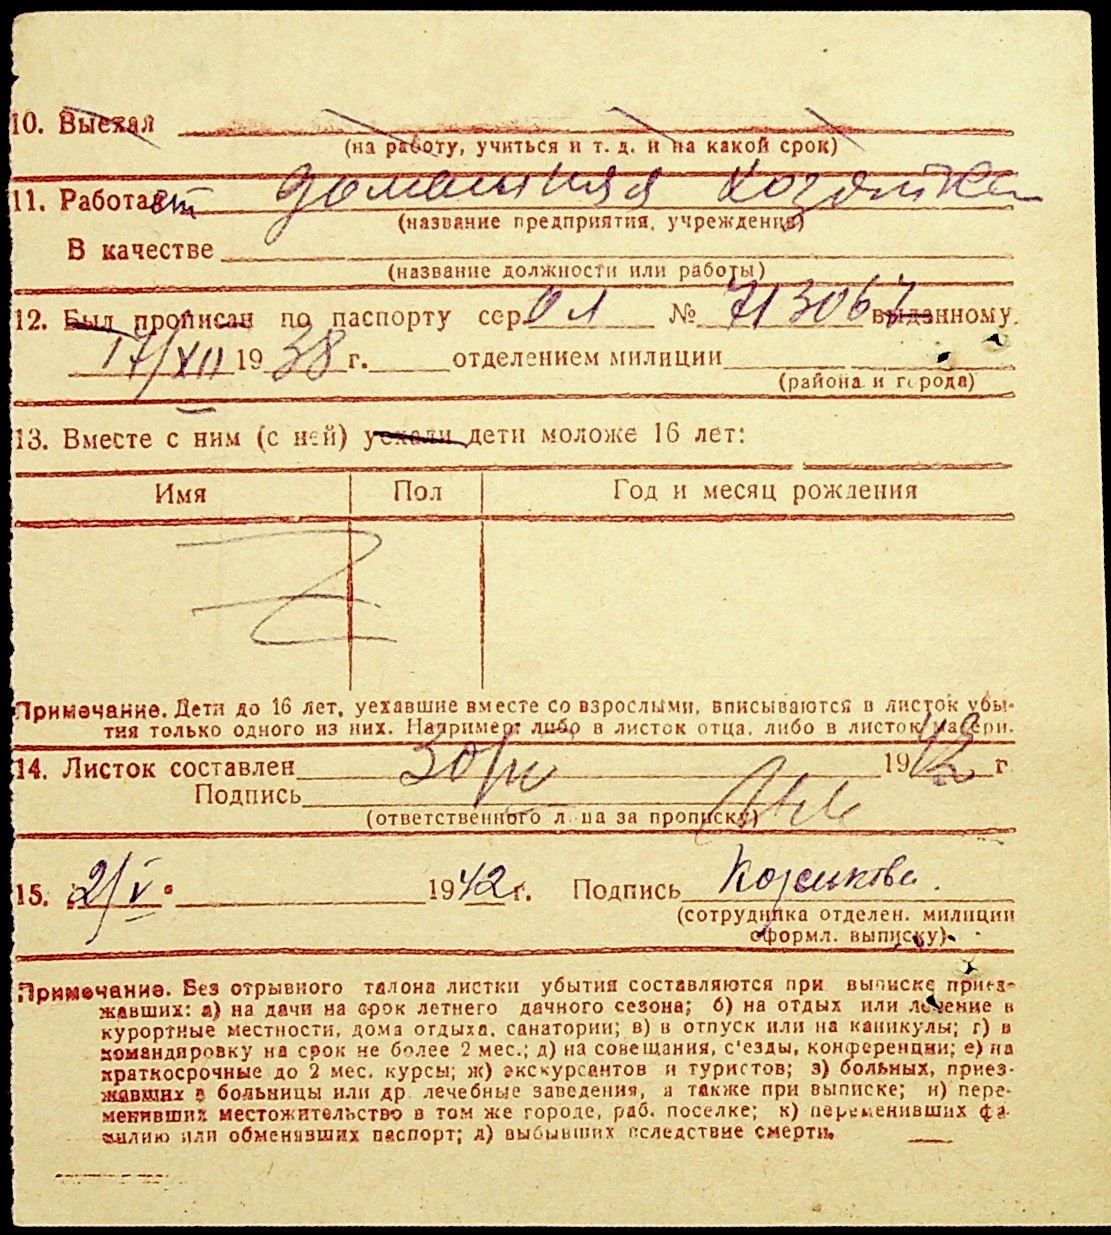 10. Выехал
(на работу, учиться и т. д. и на какой срок)
11. Работает домашняя хозяйка
(название предприятия, учреждения)
В качестве
(название должности или работы)
12. Был прописан по паспорту сер. ОЛ № 713067 выданному
17/XII 1938 г. отделением милиции
(района и города)
13. Вместе с ним (с ней) уехали дети моложе 16 лет:
Имя Пол Год и месяц рождения
Примечание. Дети до 16 лет, уехавшие вместе со взрослыми, вписываются в листок убы-
тия только одного из них. Например: либо в листок отца, либо в листок матери.
14. Листок составлен 30/IV 1942 г
Подпись
(ответственного лица за прописку)
15. 2/V 1942 г. Подпись
(сотрудника отделен. милиции
оформл. выписку).
Примечание. Без отрывного талона листки убытия составляются при выписке приез-
жавших: а) на дачи на срок летнего дачного сезона; б) на отдых или лечение в
курортные местности, дома отдыха, санатории; в) в отпуск или на каникулы; г) в
командировку на срок не более 2 мес.; д) на совещания, с'езды, конференции; е) на
краткосрочные до 2 мес. курсы; ж) экскурсантов и туристов; з) больных, приез-
жавших в больницы или др. лечебные заведения, а также при выписке; и) пере-
менивших местожительство в том же городе, раб. поселке; к) переменивших фа-
милию или обменявших паспорт; л) выбывших вследствие смерти.